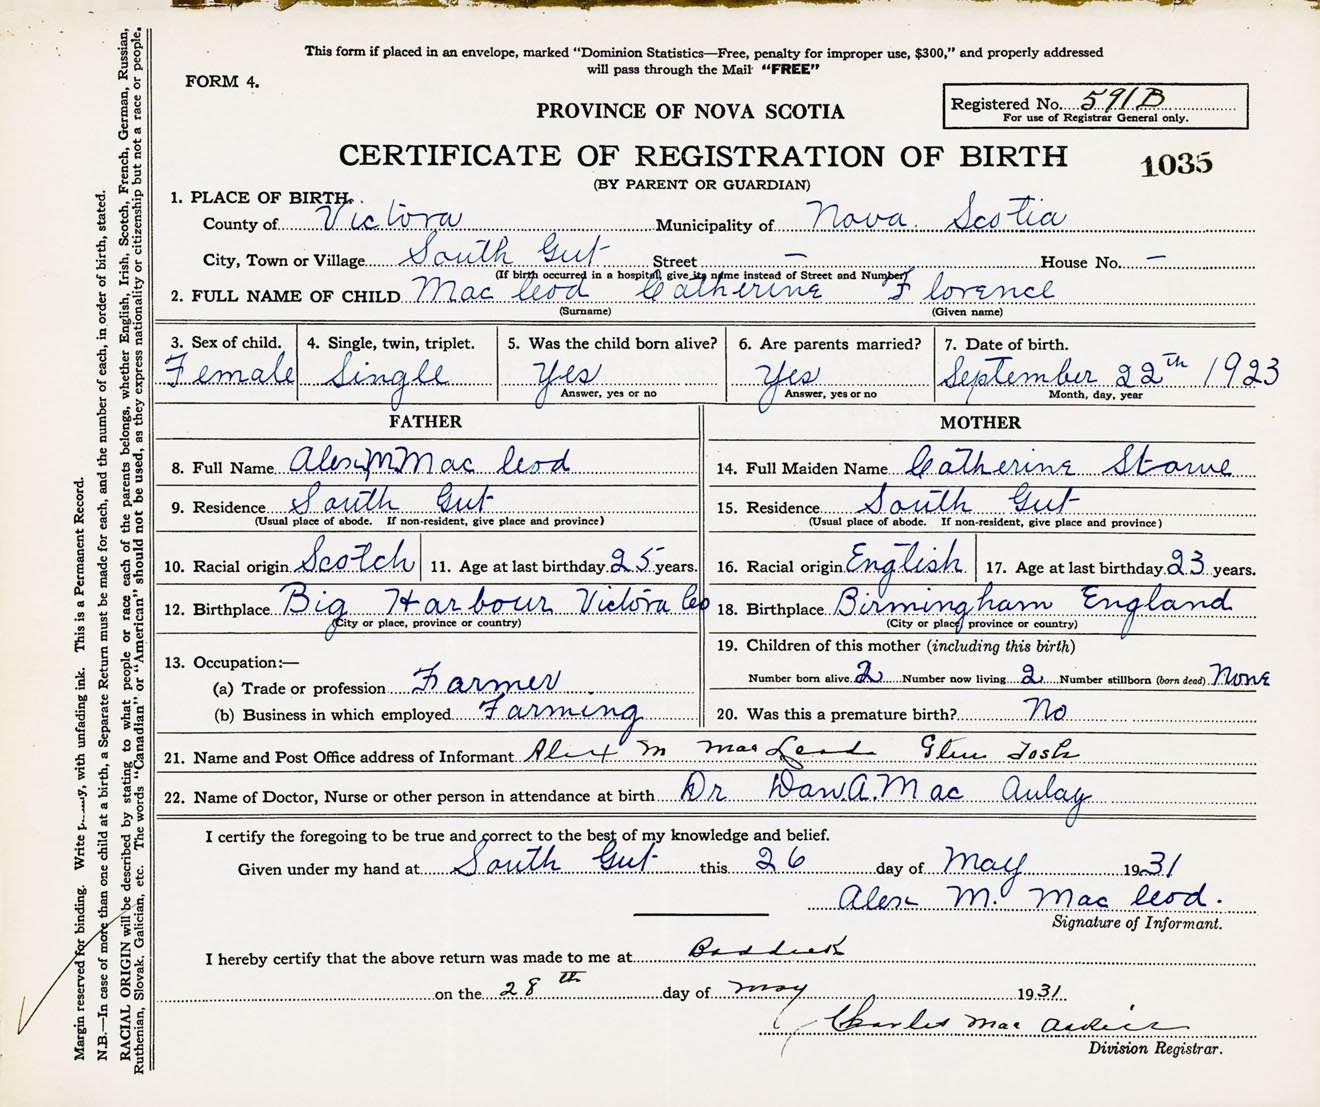 This form if placed in an envelope, marked “Dominion Statistics—Free, penalty for improper use, $300,” and properly addressed
will pass through the Mail “FREE”
FORM 4.
Registered No. 591B
For use of Registrar General only.
PROVINCE OF NOVA SCOTIA
CERTIFICATE OF REGISTRATION OF BIRTH
1035
(BY PARENT OR GUARDIAN)
1. PLACE OF BIRTH.
County of Victora Municipality of Nova Scotia
City, Town or Village South Gut Street — House No. —
(If birth occurred in a hospital, give its name instead of Street and Number)
2. FULL NAME OF CHILD Mac leod Catherine Florence
(Surname) (Given name)
3. Sex of child. 4. Single, twin, triplet. 5. Was the child born alive? 6. Are parents married? 7. Date of birth.
Female Single Yes Yes September 22th 1923
Answer, yes or no Answer, yes or no Month, day, year
FATHER MOTHER
8. Full Name Alex M Mac leod 14. Full Maiden Name Catherine
9. Residence South Gut 15. Residence South Gut
(Usual place of abode. If non-resident, give place and province) (Usual place of abode. If non-resident, give place and province)
10. Racial origin Scotch 11. Age at last birthday 25 years. 16. Racial origin English 17. Age at last birthday 23 years.
12. Birthplace Big Harbour Victora Co 18. Birthplace Birmingham England
(City or place, province or country) (City or place, province or country)
19. Children of this mother (including this birth)
13. Occupation:—
(a) Trade or profession Farmer Number born alive 2 Number now living 2 Number stillborn (born dead) None
(b) Business in which employed Farming 20. Was this a premature birth? No
21. Name and Post Office address of Informant Alex M Mac Leod Glen Tosh
22. Name of Doctor, Nurse or other person in attendance at birth Dr Dan. A. Mac Aulay
I certify the foregoing to be true and correct to the best of my knowledge and belief.
Given under my hand at South Gut this 26 day of May 1931
Alex M. Mac leod.
Signature of Informant.
I hereby certify that the above return was made to me at Baddeck
on the 28th day of May 1931.
Charles Mac
Division Registrar.
Margin reserved for binding. Write with unfading ink. This is a Permanent Record.
N.B.—In case of more than one child at a birth, a Separate Return must be made for each, and the number of each, in order of birth, stated.
RACIAL ORIGIN will be described by stating to what people or race each of the parents belongs, whether English, Irish, Scotch, French, German, Russian,
Ruthenian, Slovak, Galician, etc. The words “Canadian” or “American” should not be used, as they express nationality or citizenship but not a race or people,